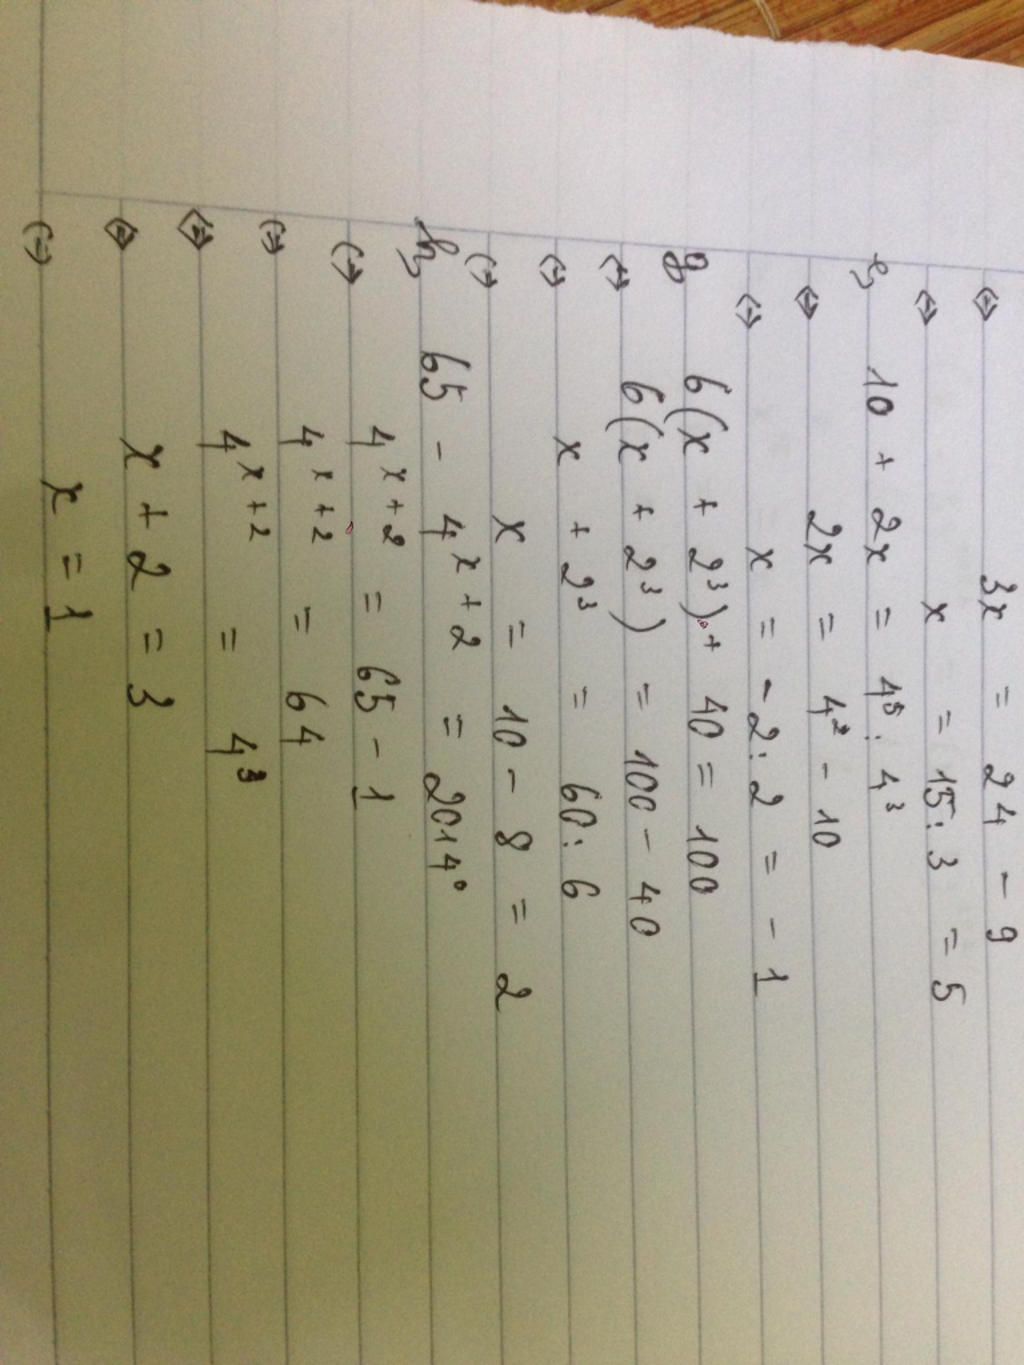 ⇔ 3x = 24 - 9
⇔ x = 15 : 3 = 5
e, 10 + 2x = 4⁵ : 4³
⇔ 2x = 4² - 10
⇔ x = -2 : 2 = -1
g 6(x + 2³) + 40 = 100
⇔ 6(x + 2³) = 100 - 40
⇔ x + 2³ = 60 : 6
⇔ x = 10 - 8 = 2
h, 65 - 4ˣ⁺² = 2014⁰
⇔ 4ˣ⁺² = 65 - 1
⇔ 4ˣ⁺² = 64
⇔ 4ˣ⁺² = 4³
⇔ x + 2 = 3
⇔ x = 1